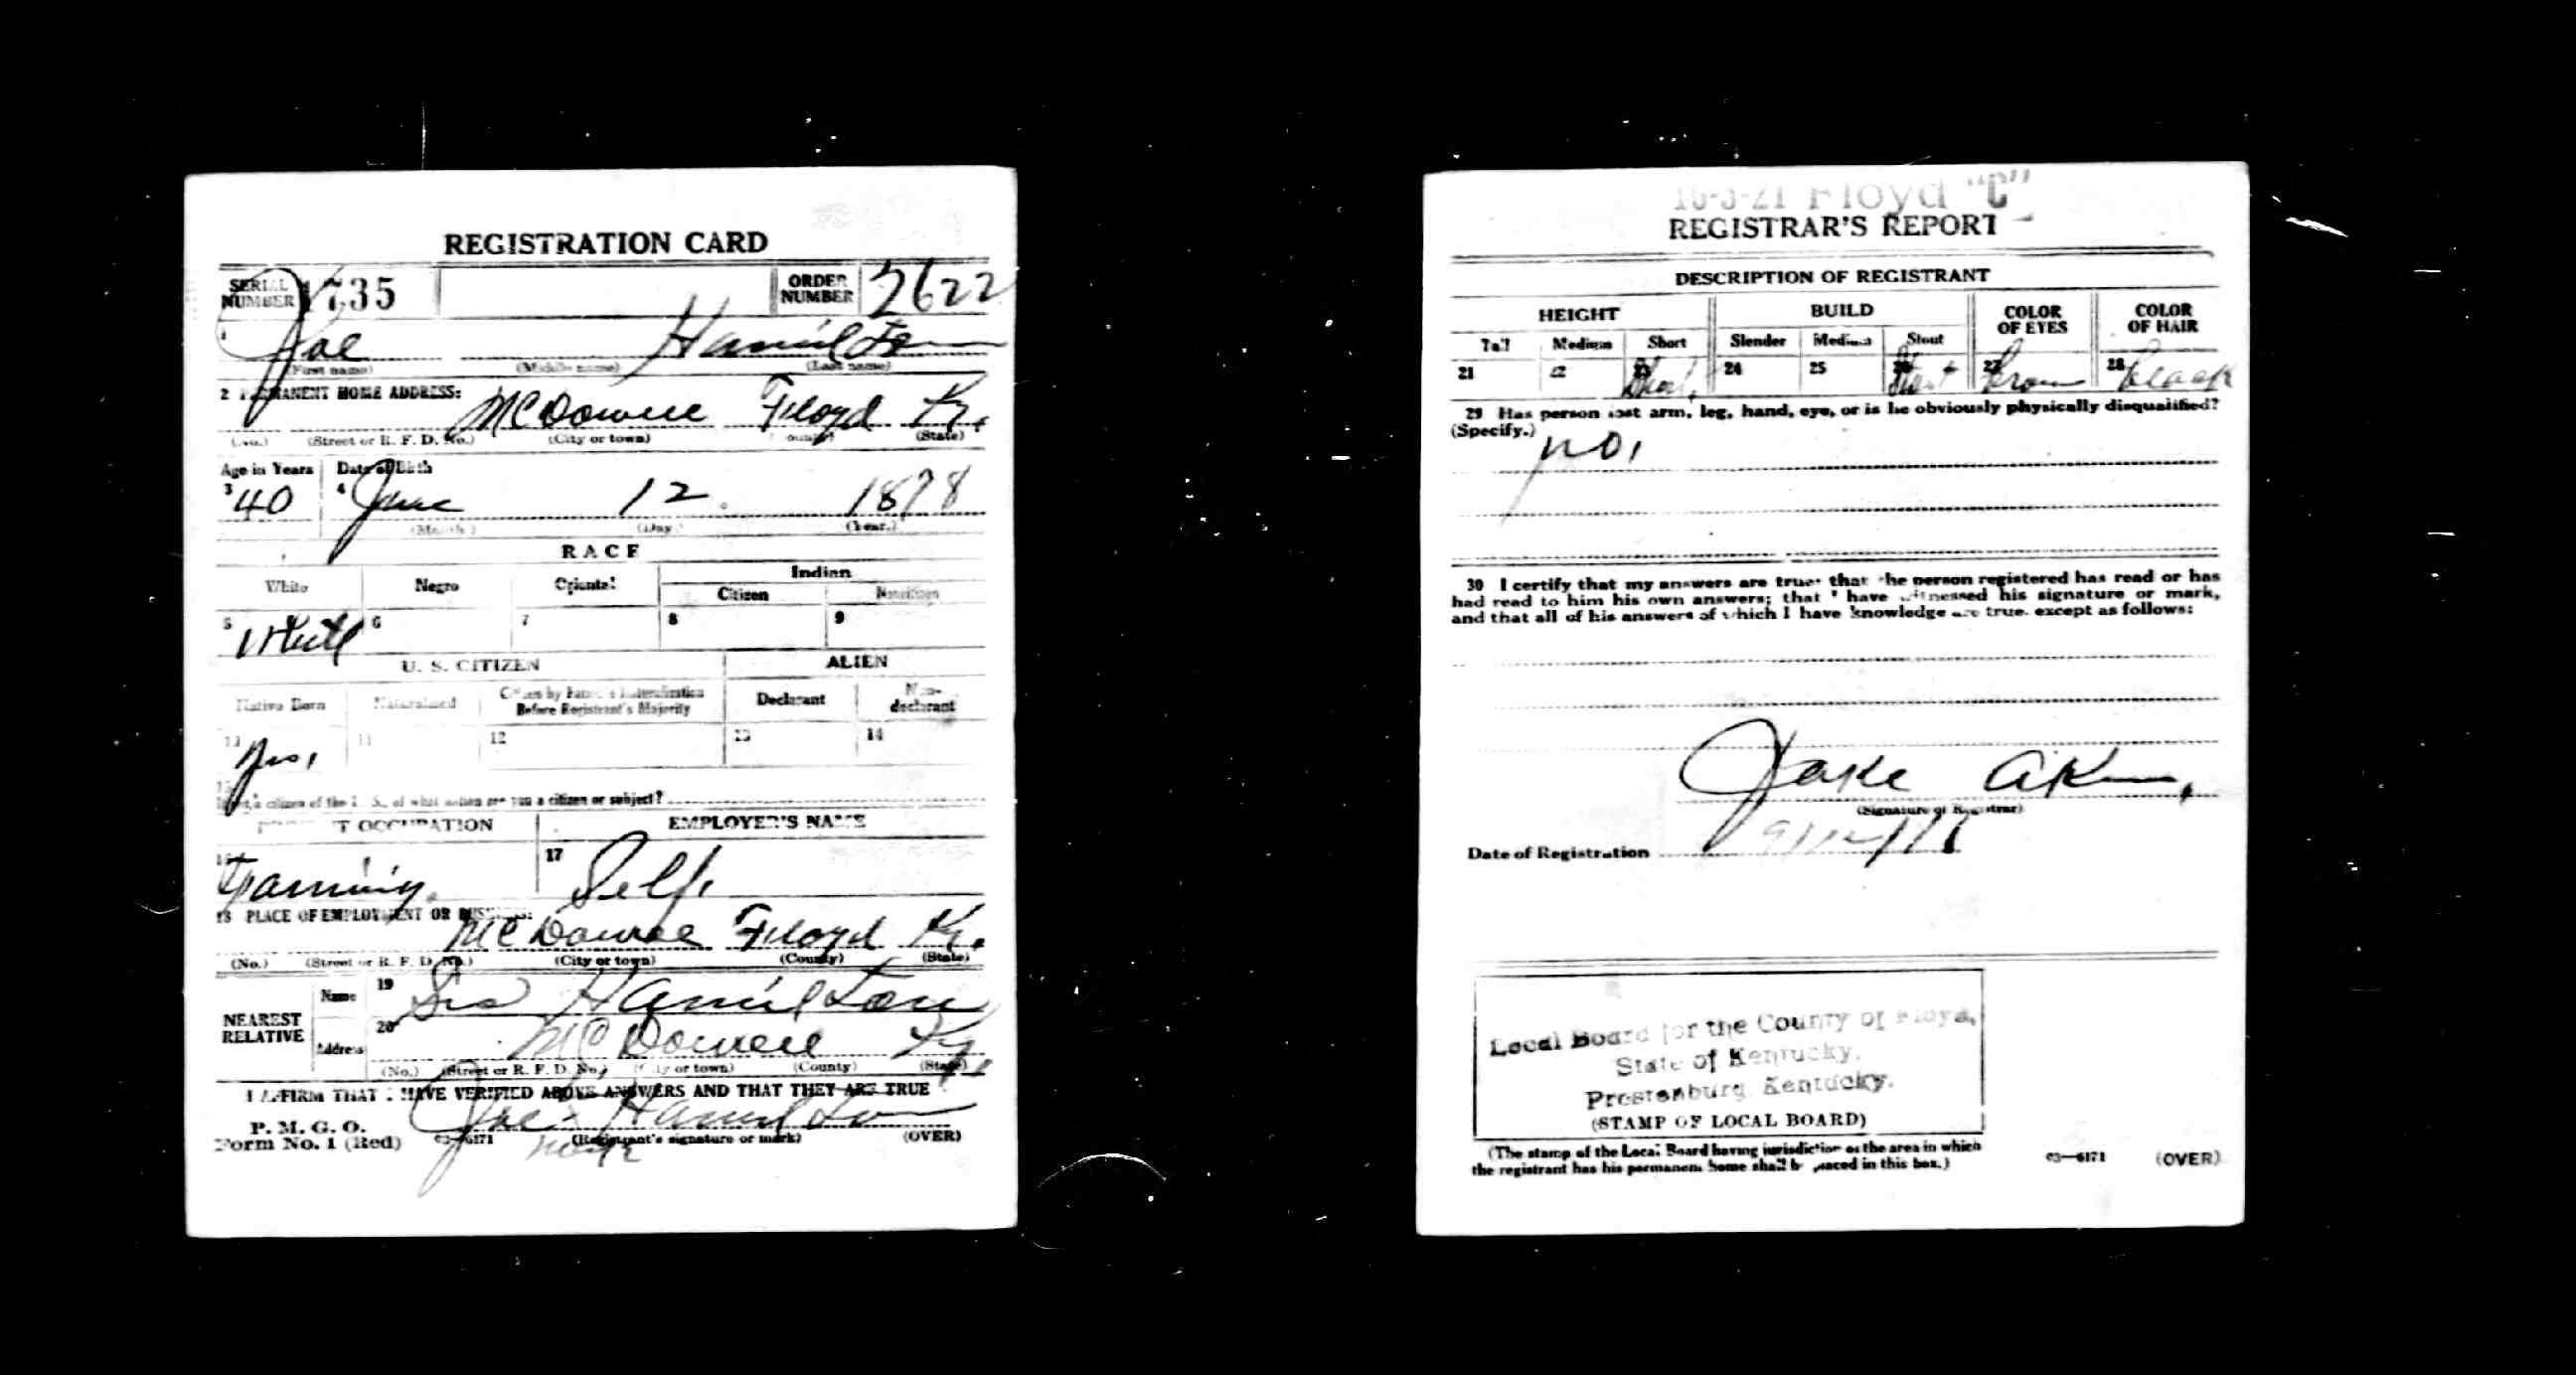 REGISTRATION CARD
SERIAL NUMBER 1735 ORDER NUMBER 2622
1 Joe Hamilton
(First name) (Middle name) (Last name)
2 PERMANENT HOME ADDRESS:
McDowell Floyd Ky.
(No.) (Street or R. F. D. No.) (City or town) (County) (State)
Age in Years Date of Birth
3 40 4 June 12 1878
(Month.) (Day.) (Year.)
RACE
White Negro Oriental Indian
Citizen Noncitizen
5 White 6 7 8 9
U. S. CITIZEN ALIEN
Native Born Naturalized Citizen by Father's Naturalization Before Registrant's Majority Declarant Non-declarant
10 Yes, 11 12 13 14
15 If not a citizen of the U. S., of what nation are you a citizen or subject?
PRESENT OCCUPATION EMPLOYER'S NAME
16 Farming. 17 Self.
18 PLACE OF EMPLOYMENT OR BUSINESS:
McDowell Floyd Ky.
(No.) (Street or R. F. D. No.) (City or town) (County) (State)
NEAREST RELATIVE
Name 19 Hamilton
Address 20 McDowell Ky.
(No.) (Street or R. F. D. No.) (City or town) (County) (State)
I AFFIRM THAT I HAVE VERIFIED ABOVE ANSWERS AND THAT THEY ARE TRUE
Joe Hamilton
P. M. G. O.
Form No. 1 (Red) 03—6171 (Registrant's signature or mark) (OVER)
mark
16-3-21 Floyd "C"
REGISTRAR'S REPORT
DESCRIPTION OF REGISTRANT
HEIGHT BUILD COLOR OF EYES COLOR OF HAIR
Tall Medium Short Slender Medium Stout
21 22 23 Short, 24 25 26 Stout 27 Brown 28 Black
29 Has person lost arm, leg, hand, eye, or is he obviously physically disqualified?
(Specify.) no,
30 I certify that my answers are true; that the person registered has read or has
had read to him his own answers; that I have witnessed his signature or mark,
and that all of his answers of which I have knowledge are true, except as follows:
Jake
(Signature of Registrar)
Date of Registration 9/12/18
Local Board for the County of Floyd,
State of Kentucky,
Prestonburg, Kentucky.
(STAMP OF LOCAL BOARD)
(The stamp of the Local Board having jurisdiction of the area in which
the registrant has his permanent home shall be placed in this box.)
03—6171 (OVER)